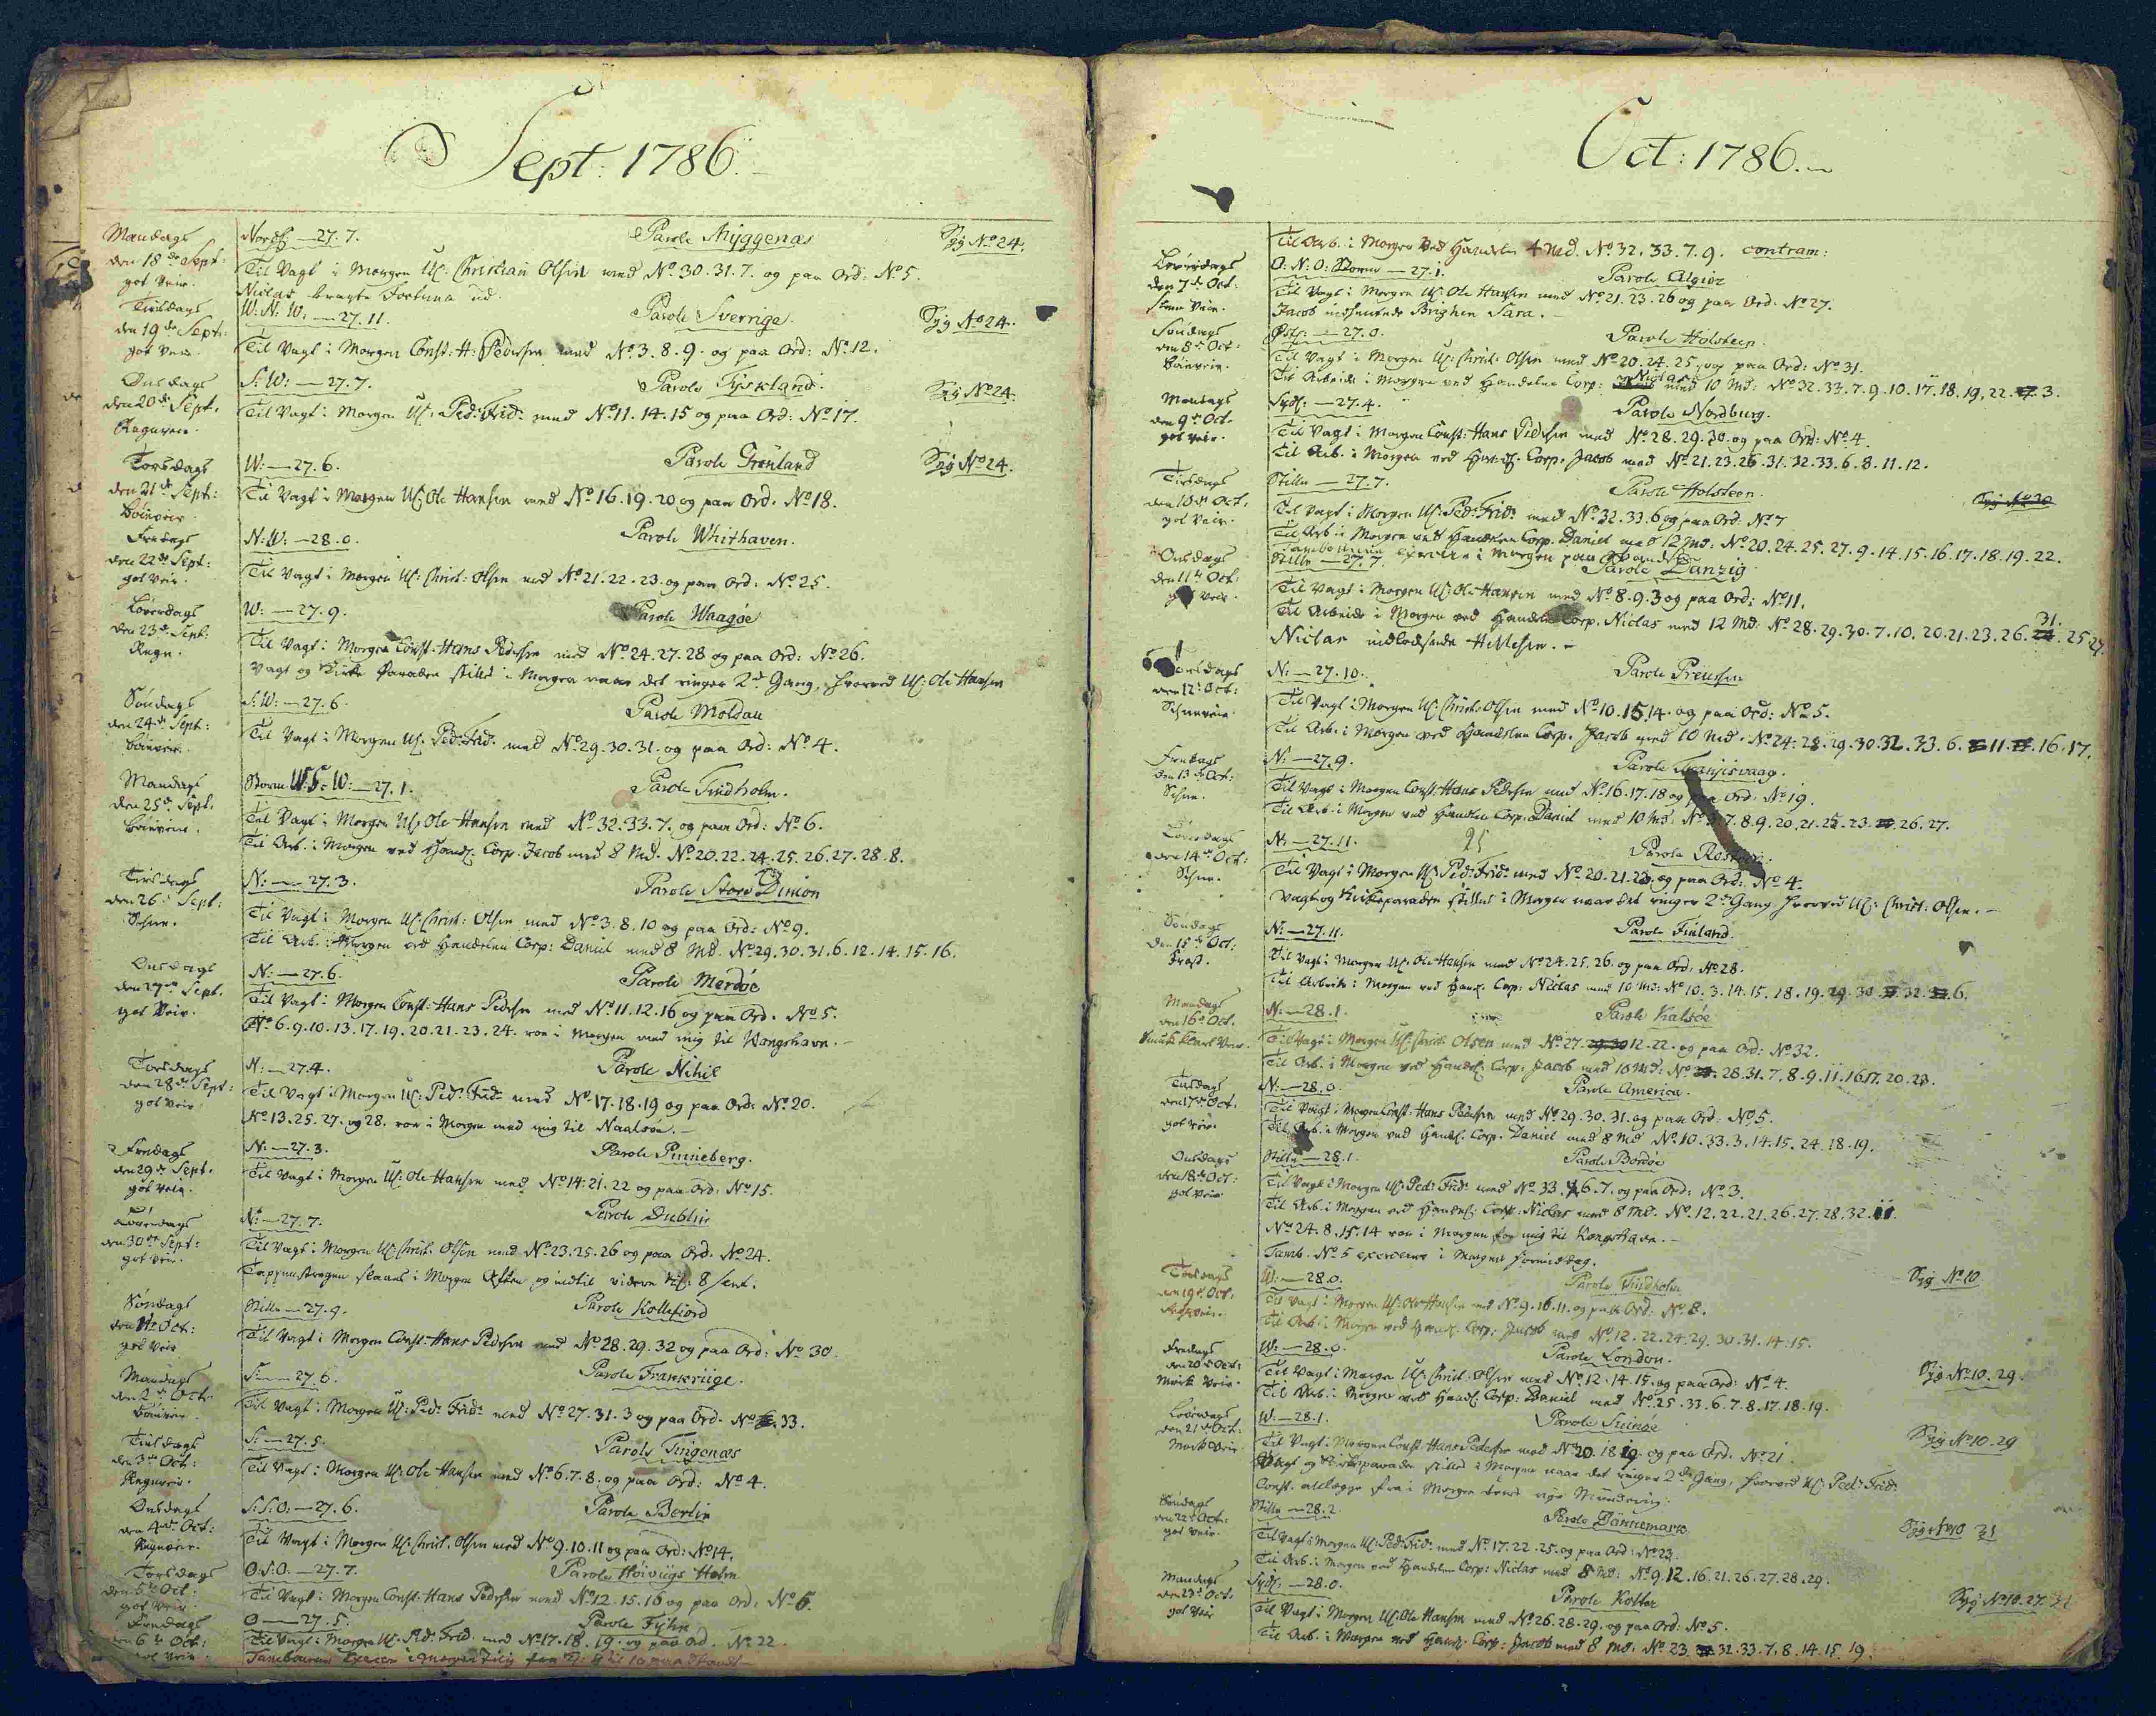 Sept: 1786.
Mandags den 18de Sept: got Veir.
Nordl: — 27. 7. Parole Myggenæs Syg No 24.
Til Vagt i Morgen U: Christian Olsen med No 30. 31. 7. og paa Ord: No 5.
Niclas bragte Fortuna ud.
Tirsdags den 19de Sept: got Veir.
W: N: W: — 27. 11. Parole Sverrige. Syg No 24.
Til Vagt i Morgen Const: H: Pedersen med No 3. 8. 9. og paa Ord: No 12.
Onsdags den 20de Sept. Regnveir.
S: W: — 27. 7. Parole Tyskland. Syg No 24.
Til Vagt i Morgen U: Ped: Frid: med No 11. 14. 15 og paa Ord: No 17.
Torsdags den 21de Sept: Böinveir
W: — 27. 6. Parole Grønland Syg No 24.
Til Vagt i Morgen U: Ole Hansen med No 16. 19. 20 og paa Ord. No 18.
Fredags den 22de Sept: got Veir.
N: W: — 28. 0. Parole Whithaven.
Til Vagt i Morgen U: Christ: Olsen med No 21. 22. 23. og paa Ord: No 25.
Løverdags den 23de Sept: Regn.
W: — 27. 9. Parole Waagøe
Til Vagt i Morgen Const. Hans Pedersen med No 24. 27. 28 og paa Ord: No 26.
Vagt og Kirke Paraden stilles i Morgen naar det ringer 2de Gang, hvorved U: Ole Hansen
Søndags den 24de Sept: Böinveir.
S: W: — 27. 6. Parole Moldau
Til Vagt i Morgen U: Ped: Frid: med No 29. 30. 31. og paa Ord: No 4.
Mandags den 25de Sept. Böinveir.
Storm W: S: W: — 27. 1. Parole Tindholm.
Til Vagt i Morgen U: Ole Hansen med No 32. 33. 7. og paa Ord: No 6.
Til Arb. i Morgen ved Handl: Corp. Jacob med 8 Md. No 20. 22. 24. 25. 26. 27. 28. 8.
Tirsdags den 26de Sept: Schnee.
N: — 27. 3. Parole Store Dimon
Til Vagt i Morgen U: Christ: Olsen med No 3. 8. 10 og paa Ord: No 9.
Til Arb. i Morgen ved Handelen Corp: Daniel med 8 Md. No 29. 30. 31. 6. 12. 14. 15. 16.
Onsdags den 27de Sept. got Veir.
N: — 27. 6. Parole Merdøe
Til Vagt i Morgen Const. Hans Pedersen med No 11. 12. 16 og paa Ord. No 5.
No 6. 9. 10. 13. 17. 19. 20. 21. 23. 24. roe i Morgen med mig til Kongshavn. —
Torsdags den 28de Sept: got Veir.
N: — 27. 4. Parole Nihil
Til Vagt i Morgen U: Ped: Frid: med No 17. 18. 19 og paa Ord: No 20.
No 13. 25. 27. og 28. roe i Morgen med mig til Naalsøe. —
Fredags den 29de Sept. got Veir.
N: — 27. 3. Parole Pinneberg.
Til Vagt i Morgen U: Ole Hansen med No 14. 21. 22 og paa Ord: No 15.
Løverdags den 30te Sept: got Veir.
N: — 27. 7. Parole Dublin
Til Vagt i Morgen U: Christ. Olsen med No 23. 25. 26 og paa Ord. No 24.
Tappenstregen slaaes i Morgen Aften og indtil videre Kl: 8 slet.
Søndags den 1te Oct: got Veir
Stille — 27. 9. Parole Kollefiord
Til Vagt i Morgen Const. Hans Pedersen med No 28. 29. 32 og paa Ord: No 30.
Mandags den 2de Oct. Böinveir.
S: — 27. 6. Parole Frankriige.
Til Vagt i Morgen U: Ped: Frid: med No 27. 31. 3 og paa Ord. No 33.
Tirsdags den 3de Oct: Regnveir.
S: — 27. 5. Parole Tingenæs
Til Vagt i Morgen U: Ole Hansen med No 6. 7. 8. og paa Ord: No 4.
Onsdags den 4de Oct: Regnveir.
S: S: O: — 27. 6. Parole Berlin
Til Vagt i Morgen U: Christ. Olsen med No 9. 10. 11 og paa Ord: No 14.
Torsdags den 5te Oct: got Veir.
O: S: O. — 27. 7. Parole Høiviigs Holm
Til Vagt i Morgen Const. Hans Pedersen med No 12. 15. 16 og paa Ord: No 6.
Fredags den 6te Oct: got Veir.
O — 27. 5. Parole Fyhn
Til Vagt i Morgen U: Ped: Frid. med No 17. 18. 19. og paa Ord. No 22.
Oct: 1786.
Til Arb. i Morgen ved Handelen 4 Md. No 32. 33. 7. 9. contram:
Løverdags den 7de Oct: Veir.
O: N: O: Storm — 27. 1. Parole Algier
Til Vagt i Morgen U: Ole Hansen med No 21. 23. 26 og paa Ord. No 27.
Jacob indhentede Brighen Sara. —
Søndags den 8de Oct: Böinveir.
Østl: — 27. 0. Parole Holsteen.
Til Vagt i Morgen U: Christ: Olsen med No 20. 24. 25. og paa Ord: No 31.
Til Arbeide i Morgen ved Handelen Corp: Niclas med 10 Md: No 32. 33. 7. 9. 10. 17. 18. 19. 22. 3.
Mandags den 9de Oct. got Veir.
Sydl: — 27. 4. Parole Nordburg.
Til Vagt i Morgen Const: Hans Pedersen med No 28. 29. 30. og paa Ord: No 4.
Til Arb. i Morgen ved Handl: Corp. Jacob med No 21. 23. 26. 31. 32. 33. 6. 8. 11. 12.
Tirsdags den 10de Oct. got Veir.
Stille — 27. 7. Parole Holsteen.
Til Vagt i Morgen U: Ped: Frid: med No 32. 33. 6 og paa Ord: No 7
Til Arb i Morgen ved Handelen Corp. Daniel med 12 Md: No 20. 24. 25. 27. 9. 14. 15. 16. 17. 18. 19. 22.
Onsdags den 11te Oct: got Veir.
Stille — 27. 7. Parole Danzig
Til Vagt i Morgen U: Ole Hansen med No 8. 9. 3 og paa Ord: No 11.
Til Arbeide i Morgen ved Handelen Corp. Niclas med 12 Md: No 28. 29. 30. 7. 10. 20. 21. 23. 26. 31. 25. 27.
Niclas indlodsede —
Torsdags den 12te Oct: Schneeveir.
N: — 27. 10. Parole Preussen
Til Vagt i Morgen U: Christ. Olsen med No 10. 15. 14. og paa Ord: No 5.
Til Arb. i Morgen ved Handelen Corp. Jacob med 10 Md. No 24. 28. 29. 30. 32. 33. 6. 11. 16. 17.
Fredags den 13de Oct: Schnee.
N: — 27. 9. Parole Tranjisvaag.
Til Vagt i Morgen Const: Hans Pedersen med No 16. 17. 18 og paa Ord: No 19.
Til Arb. i Morgen ved Handelen Corp: Daniel med 10 Md: No 7. 8. 9. 20. 21. 25. 23. 26. 27.
Løverdags den 14de Oct: Schnee.
N: — 27. 11. Parole
Til Vagt i Morgen U: Ped: Frid: med No 20. 21. 23. og paa Ord: No 4.
Vagt og Kirkeparaden stilles i Morgen naar det ringer 2de Gang, hvorved U: Christ. Olsen. —
Søndags den 15de Oct: Frost.
N: — 27. 11. Parole Finland.
Til Vagt i Morgen U: Ole Hansen med No 24. 25. 26. og paa Ord: No 28.
Til Arbeide i Morgen ved Handl: Corp: Niclas med 10 Md: No 10. 3. 14. 15. 18. 19. 29. 30. 32. 6.
Mandags den 16de Oct. Smukt klart Veir.
N: — 28. 1. Parole Kalsøe
Til Vagt i Morgen U: Christ: Olsen med No 27. 12. 22. og paa Ord: No 32.
Til Arb. i Morgen ved Handl: Corp: Jacob med 10 Md: No 28. 31. 7. 8. 9. 11. 16. 17. 20. 23.
Tirsdags den 17de Oct. got Veir.
N: — 28. 0. Parole America.
Til Vagt i Morgen Const. Hans Pedersen med No 29. 30. 31. og paa Ord: No 5.
Til Arb. i Morgen ved Handl. Corp. Daniel med 8 Md No 10. 33. 3. 14. 15. 24. 18. 19.
Onsdags den 18de Oct: got Veir
Stille — 28. 1. Parole Bordøe
Til Vagt i Morgen U: Ped: Frid: med No 33. 6. 7. og paa Ord: No 3.
Til Arb. i Morgen ved Handel: Corp. Niclas med 8 Md. No 12. 22. 21. 26. 27. 28. 32. 11.
No 24. 8. 15. 14 roe i Morgen for mig til Kongshavn. —
Tamb. No 5 exercerer i Morgen Formiddag.
Torsdags den 19de Oct.
W: — 28. 0. Parole Tindholm Syg No 10
Til Vagt i Morgen U: Ole Hansen med No 9. 16. 11. og paa Ord: No 8.
Til Arb. i Morgen ved Handl. Corp: Jacob med No 12. 22. 24. 29. 30. 31. 14. 15.
Fredags den 20de Oct: Mörk Veir.
W: — 28. 0. Parole London. Syg No 10. 29.
Til Vagt i Morgen U: Christ. Olsen med No 12. 14. 15. og paa Ord: No 4.
Til Arb. i Morgen ved Handl: Corp: Daniel med No 25. 33. 6. 7. 8. 17. 18. 19.
Løverdags den 21de Oct: Mörk Veir.
W: — 28. 1. Parole Suinöe Syg No 10. 29
Til Vagt i Morgen Const: Hans Pedersen med No 20. 18. 19. og paa Ord. No 21.
Vagt og Kirkeparaden stilles i Morgen naar det ringer 2de Gang, hvorved U: Ped: Frid:
Søndags den 22de Oct: got Veir.
Stille — 28. 2. Parole Dännemark Syg No 10 31
Til Vagt i Morgen U: Ped: Frid: med No 17. 22. 25. og paa Ord: No 23.
Til Arb. i Morgen ved Handelen Corp: Niclas med 8 Md: No 9. 12. 16. 21. 26. 27. 28. 29.
Mandags den 23de Oct. got Veir
Sydl: — 28. 0. Parole Kolter Syg No 10. 27. 31
Til Vagt i Morgen U: Ole Hansen med No 26. 28. 29. og paa Ord: No 5.
Til Arb. i Morgen ved Handl: Corp: Jacob med 8 Md. No 23. 32. 33. 7. 8. 14. 15. 19.